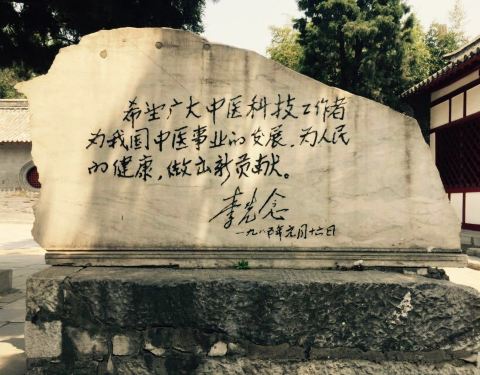 希望广大中医科技工作者
为我国中医事业的发展，为人民
的健康，做出新贡献。
李先念
一九八五年元月十六日